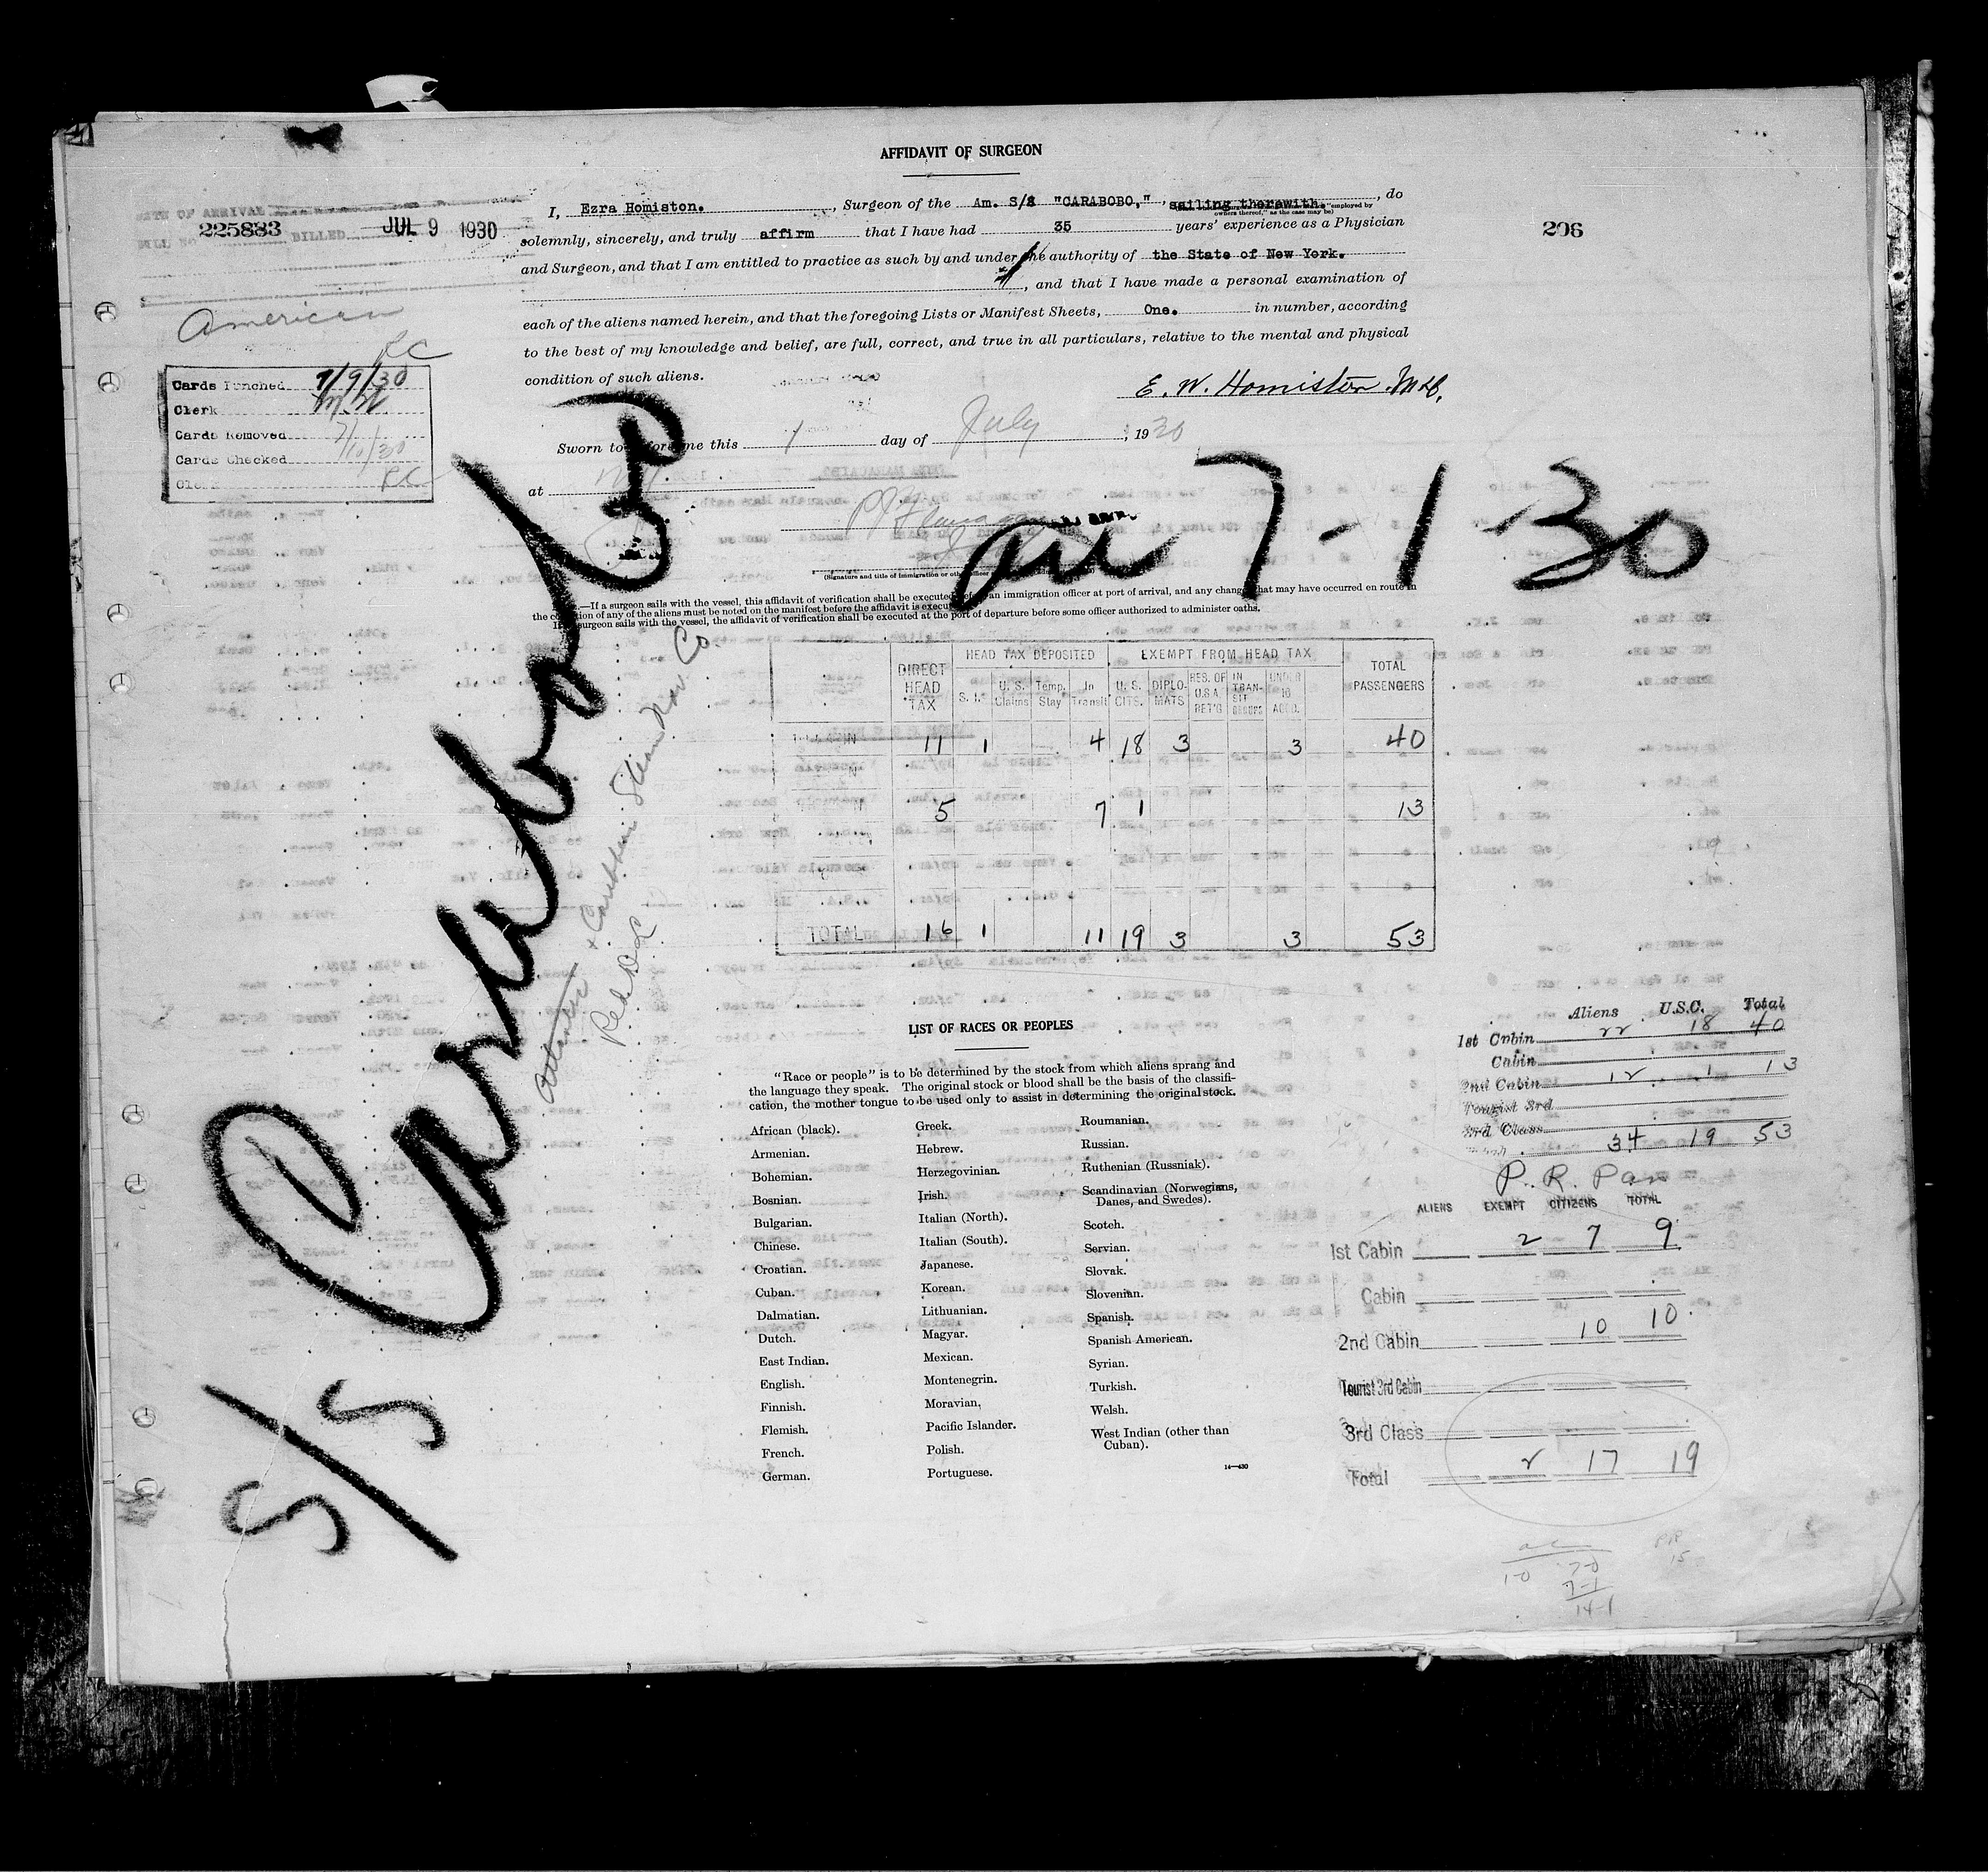 AFFIDAVIT OF SURGEON
DATE OF ARRIVAL
BILL No. 225883 BILLED JUL 9 1930
206
I, Ezra Homiston. , Surgeon of the Am. S/S "CARABOBO," , sailing therewith. , do
employed by
owners thereof," as the case may be)
solemnly, sincerely, and truly affirm that I have had 35 years' experience as a Physician
and Surgeon, and that I am entitled to practice as such by and under the authority of the State of New York.
, and that I have made a personal examination of
each of the aliens named herein, and that the foregoing Lists or Manifest Sheets, One. in number, according
to the best of my knowledge and belief, are full, correct, and true in all particulars, relative to the mental and physical
condition of such aliens.
E. W. Homiston M.D.
Sworn to before me this 1 day of July , 1930
at
American
RC
Cards Punched 7/9/30
Clerk
Cards Removed
Cards Checked 7/10/30
Clerk RC
S/S Carabobo
arr 7-1-30
Atlantic & Caribbean Steam Nav. Co.
Red D L
(Signature and title of immigration or
.—If a surgeon sails with the vessel, this affidavit of verification shall be executed before an immigration officer at port of arrival, and any change that may have occurred en route in
the condition of any of the aliens must be noted on the manifest before the affidavit is executed.
surgeon sails with the vessel, the affidavit of verification shall be executed at the port of departure before some officer authorized to administer oaths.
DIRECT HEAD TAX
HEAD TAX DEPOSITED
EXEMPT FROM HEAD TAX
TOTAL PASSENGERS
S. I. U. S. Claims Temp. Stay In Transit U. S. CITS. DIPLOMATS RES. OF U.S.A. RET'G IN TRANSIT UNDER 16 ACCO.
11 1 4 18 3 3 40
5 7 1 13
TOTAL 16 1 11 19 3 3 53
LIST OF RACES OR PEOPLES
"Race or people" is to be determined by the stock from which aliens sprang and
the language they speak. The original stock or blood shall be the basis of the classifi-
cation, the mother tongue to be used only to assist in determining the original stock.
African (black).
Armenian.
Bohemian.
Bosnian.
Bulgarian.
Chinese.
Croatian.
Cuban.
Dalmatian.
Dutch.
East Indian.
English.
Finnish.
Flemish.
French.
German.
Greek.
Hebrew.
Herzegovinian.
Irish.
Italian (North).
Italian (South).
Japanese.
Korean.
Lithuanian.
Magyar.
Mexican.
Montenegrin.
Moravian.
Pacific Islander.
Polish.
Portuguese.
Roumanian.
Russian.
Ruthenian (Russniak).
Scandinavian (Norwegians,
Danes, and Swedes).
Scotch.
Servian.
Slovak.
Slovenian.
Spanish.
Spanish American.
Syrian.
Turkish.
Welsh.
West Indian (other than
Cuban).
14—430
Aliens U.S.C. Total
1st Cabin 22 18 40
Cabin
2nd Cabin 12 1 13
Tourist 3rd
3rd Class
34 19 53
P. R. Pas
ALIENS EXEMPT CITIZENS TOTAL
1st Cabin 2 7 9
Cabin
2nd Cabin 10 10
Tourist 3rd Cabin
3rd Class
Total 2 17 19
1-0 7-0
7-1
14-1
PR
15